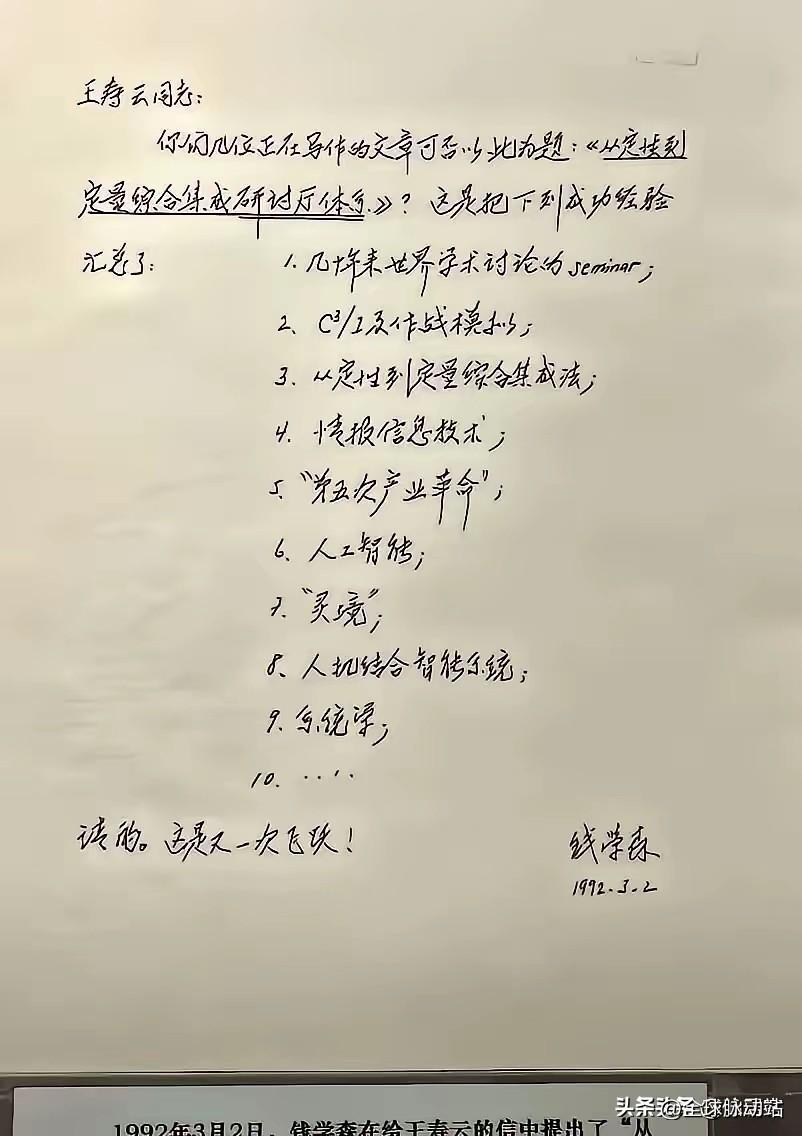 王寿云同志：
你们几位正在写作的文章可否以此为题：《从定性到
定量综合集成研讨厅体系》？这是把下列成功经验
汇总了：
1. 几十年来世界学术讨论的 seminar；
2、C³/I及作战模拟；
3、从定性到定量综合集成法；
4、情报信息技术；
5、“第五次产业革命”；
6、人工智能；
7、“灵境”；
8、人机结合智能系统；
9、系统学；
10. ……
请酌。这是又一次飞跃！
钱学森
1992.3.2
1992年3月2日，钱学森在给王寿云的信中提出了“从
头条 @全球脉动站